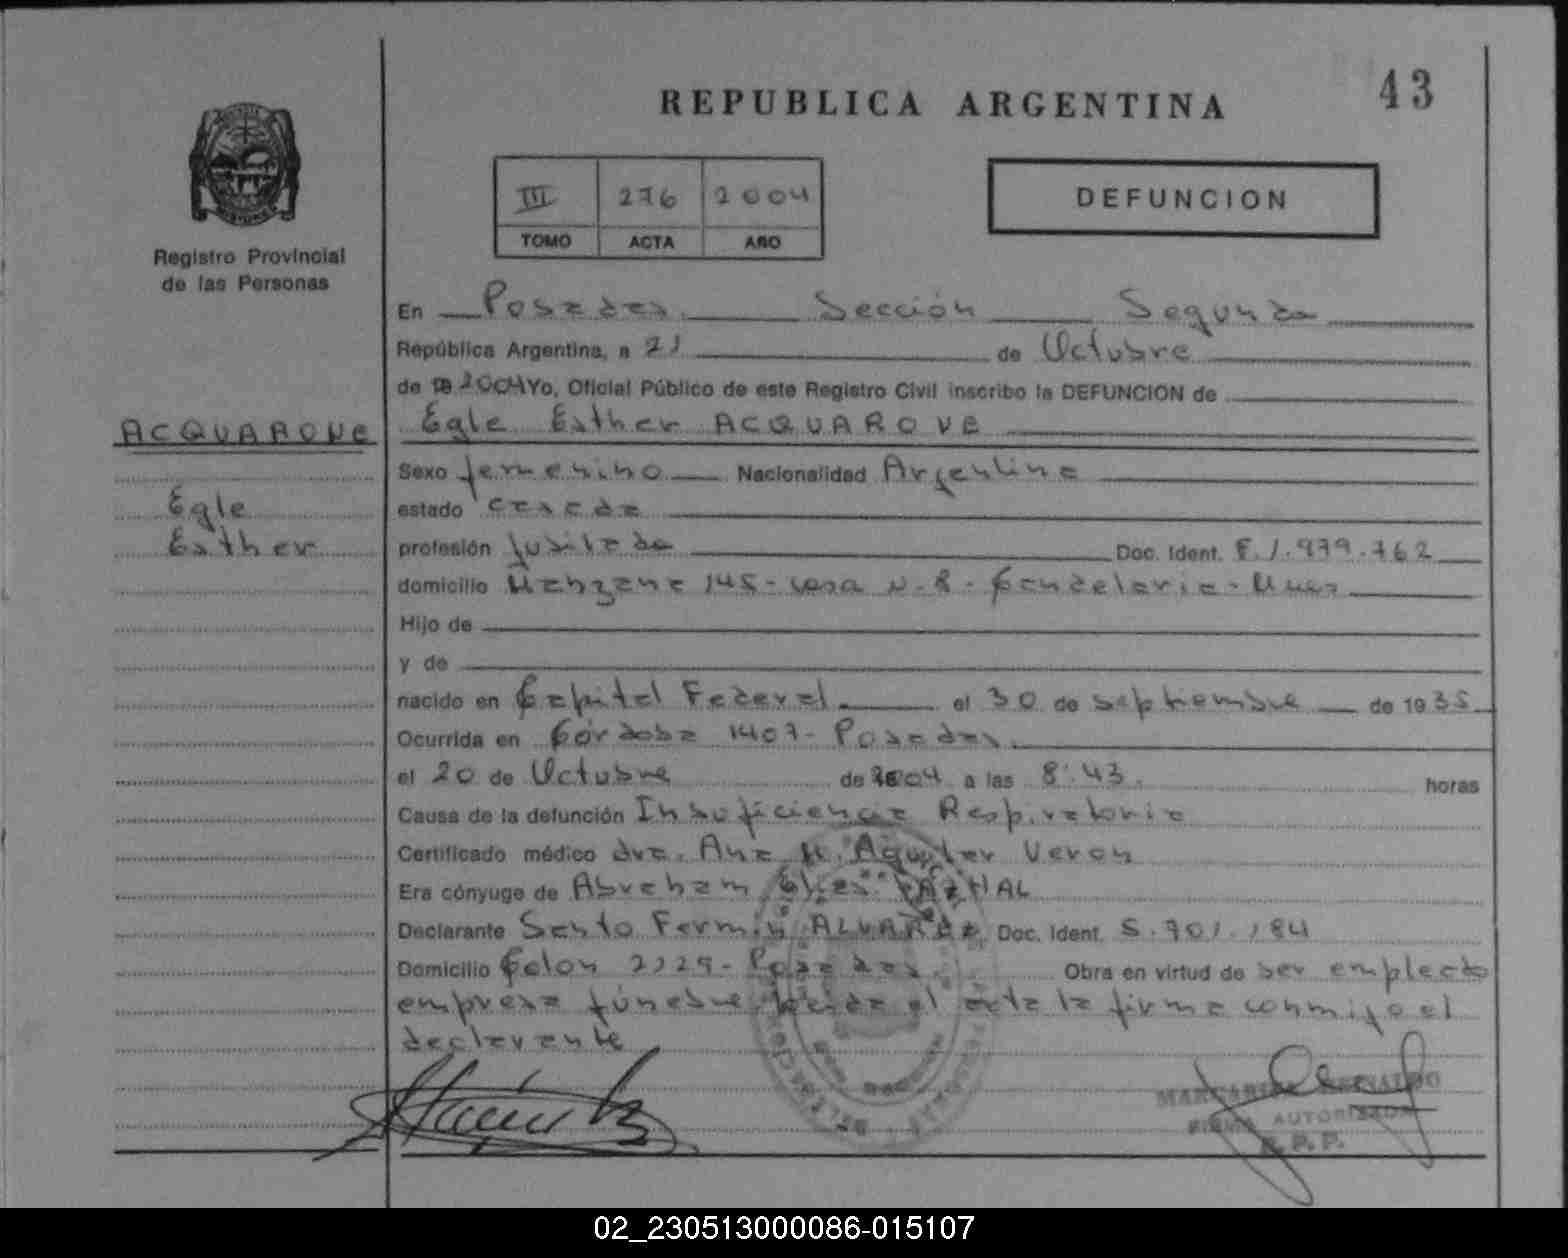 43
REPUBLICA ARGENTINA
III 276 2004
TOMO ACTA AÑO
DEFUNCION
Registro Provincial
de las Personas
En Posadas. Sección Segunda
República Argentina, a 21 de Octubre
de 2004 Yo, Oficial Público de este Registro Civil inscribo la DEFUNCION de
ACQUARONE
Egle Esther ACQUARONE
Sexo femenino Nacionalidad Argentina
Egle
estado casada
Esther
profesión jubilada Doc. Ident. F. 1.979.762
domicilio Manzana 145 - casa N. 8 - Candelaria - Mnes
Hijo de
y de
nacido en Capital Federal el 30 de septiembre de 1935
Ocurrida en Córdoba 1407 - Posadas.
el 20 de Octubre de 2004 a las 8:43. horas
Causa de la defunción Insuficiencia Respiratoria
Certificado médico dra. Ana M. Aguilar Veron
Era cónyuge de Abraham
Declarante Santo Fermin ALVAREZ Doc. Ident. 5.701.184
Domicilio Colon 2229 - Posadas. Obra en virtud de ser emplecto
empresa fúnebre. Leída el acta la firma conmigo el
declarante
FIRMA AUTORIZADA
R. P. P.
02_230513000086-015107